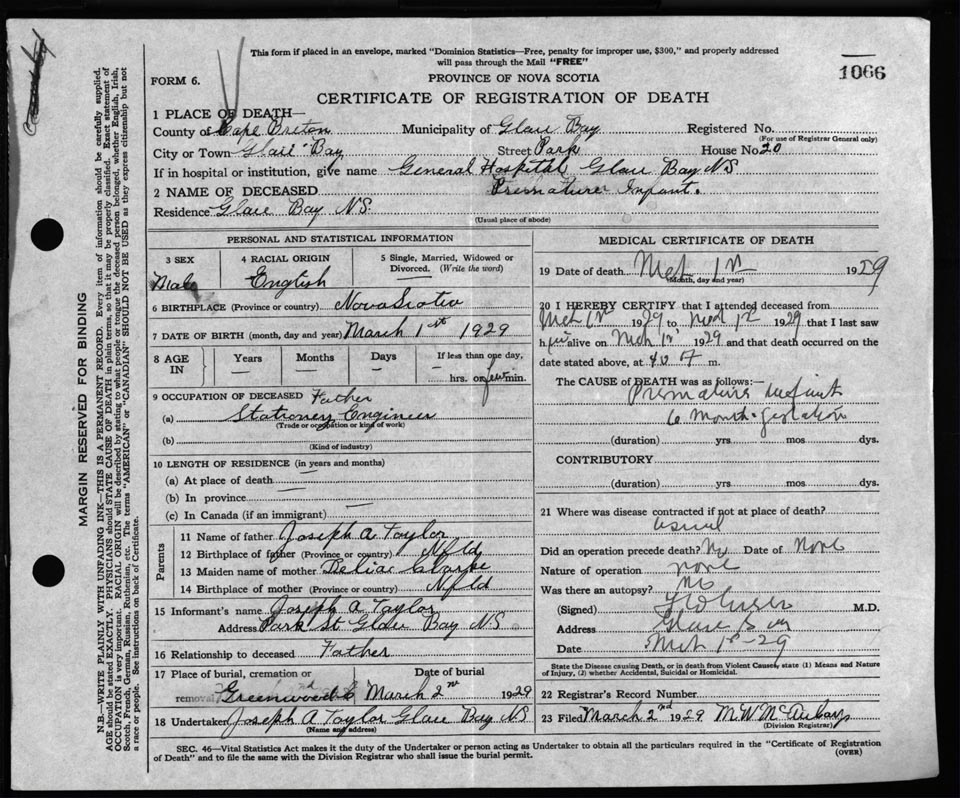 This form if placed in an envelope, marked "Dominion Statistics—Free, penalty for improper use, $300," and properly addressed
will pass through the Mail "FREE"
1066
FORM 6.
PROVINCE OF NOVA SCOTIA
CERTIFICATE OF REGISTRATION OF DEATH
1 PLACE OF DEATH—
County of Cape Breton Municipality of Glace Bay Registered No.
(For use of Registrar General only)
City or Town Glace Bay Street Park House No. 20
If in hospital or institution, give name General Hospital Glace Bay NS
2 NAME OF DECEASED Premature Infant.
Residence Glace Bay NS.
(Usual place of abode)
PERSONAL AND STATISTICAL INFORMATION
3 SEX
Male
4 RACIAL ORIGIN
English
5 Single, Married, Widowed or
Divorced. (Write the word)
—
6 BIRTHPLACE (Province or country) Nova Scotia
7 DATE OF BIRTH (month, day and year) March 1st 1929
8 AGE
IN
Years
—
Months
—
Days
—
If less than one day,
hrs. or few min.
9 OCCUPATION OF DECEASED Father
(a) Stationery Engineer
(Trade or occupation or kind of work)
(b)
(Kind of industry)
10 LENGTH OF RESIDENCE (in years and months)
(a) At place of death —
(b) In province —
(c) In Canada (if an immigrant) —
Parents
11 Name of father Joseph A Taylor
12 Birthplace of father (Province or country) Nfld
13 Maiden name of mother Delia Clarke
14 Birthplace of mother (Province or country) Nfld
15 Informant's name Joseph A Taylor
Address Park St Glace Bay NS
16 Relationship to deceased Father
17 Place of burial, cremation or
removal Greenwood
Date of burial
March 2nd 1929
18 Undertaker Joseph A Taylor Glace Bay NS
(Name and address)
MEDICAL CERTIFICATE OF DEATH
19 Date of death Mch 1st 1929
(Month, day and year)
20 I HEREBY CERTIFY that I attended deceased from
Mch 1st 1929 to Mch 1st 1929 that I last saw
him alive on Mch 1st 1929 and that death occurred on
date stated above, at m.
The CAUSE OF DEATH was as follows:
Premature Infant
6 Month Gestation
(duration) yrs mos dys.
CONTRIBUTORY
(duration) yrs mos dys.
21 Where was disease contracted if not at place of death?
Did an operation precede death? No Date of None
Nature of operation none
Was there an autopsy? No
(Signed) M.D.
Address Glace Bay
Date Mch 1st - 29
State the Disease causing Death, or in death from Violent Causes, state (1) Means and Nature
of Injury, (2) whether Accidental, Suicidal or Homicidal.
22 Registrar's Record Number
23 Filed March 2nd 1929 M.W. McAulay
(Division Registrar)
SEC. 46—Vital Statistics Act makes it the duty of the Undertaker or person acting as Undertaker to obtain all the particulars required in the "Certificate of Registration
of Death" and to file the same with the Division Registrar who shall issue the burial permit.
(OVER)
MARGIN RESERVED FOR BINDING
N.B.—WRITE PLAINLY WITH UNFADING INK—THIS IS A PERMANENT RECORD. Every item of information should be carefully supplied.
AGE should be stated EXACTLY. PHYSICIANS should STATE CAUSE OF DEATH in plain terms, so that it may be properly classified. Exact statement of
OCCUPATION is very important. RACIAL ORIGIN will be described by stating to what people or tongue the deceased person belonged, whether English, Irish,
Scotch, French, German, Russian, Ruthenian, etc. The terms "AMERICAN" or "CANADIAN" SHOULD NOT BE USED as they express citizenship but not
a race or people. See instructions on back of Certificate.